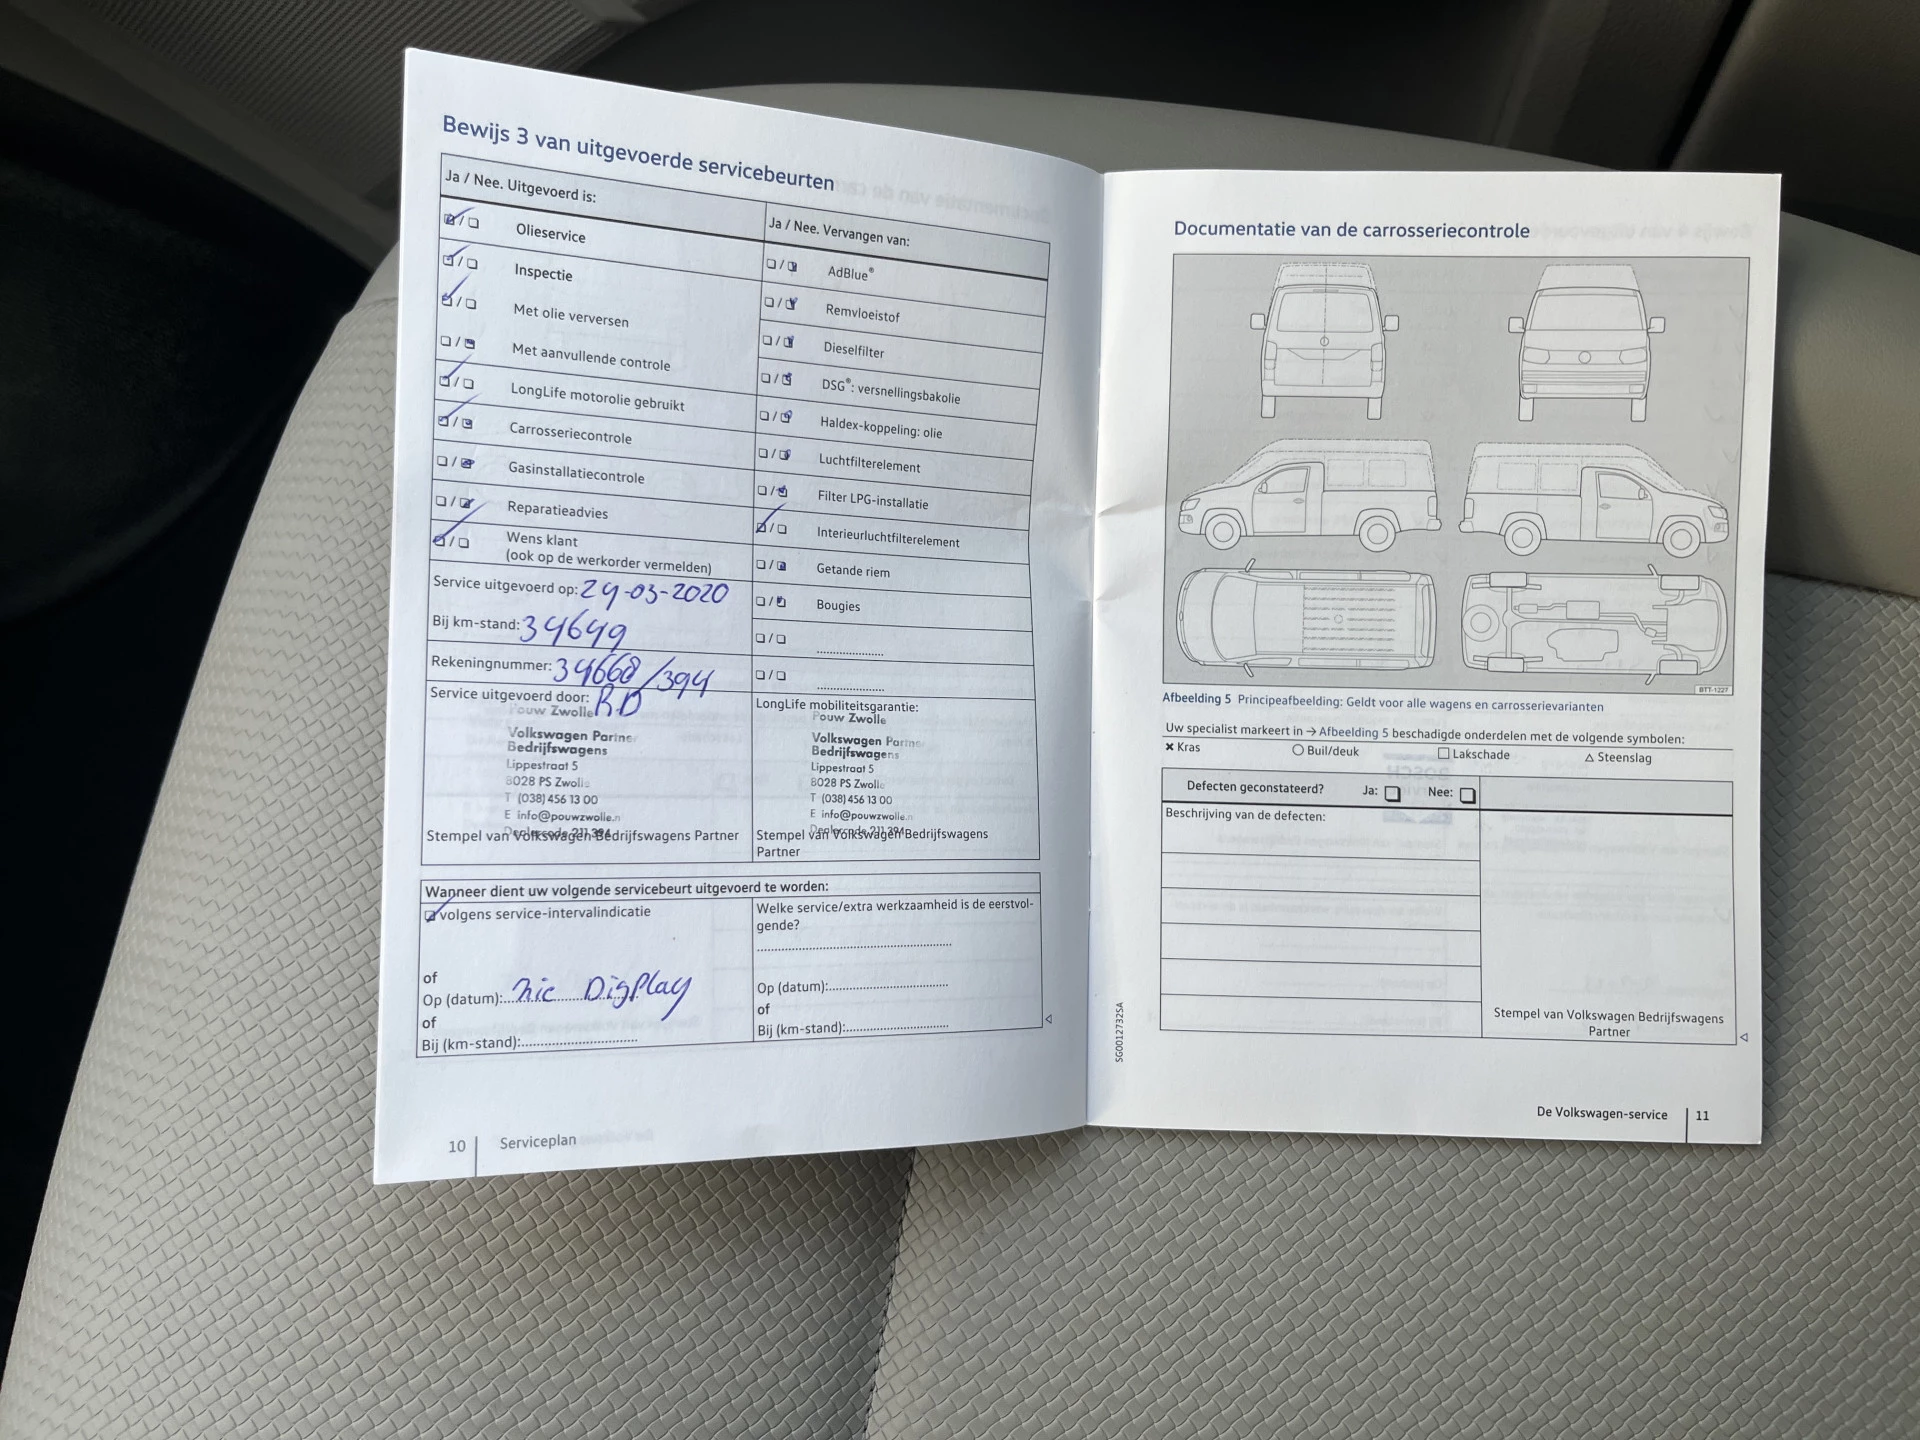 Bewijs 3 van uitgevoerde servicebeurten
Ja / Nee. Uitgevoerd is:
Olieservice
Inspectie
Met olie verversen
Met aanvullende controle
LongLife motorolie gebruikt
Carrosseriecontrole
Gasinstallatiecontrole
Reparatieadvies
Wens klant
(ook op de werkorder vermelden)
Service uitgevoerd op: 24-03-2020
Bij km-stand: 34649
Rekeningnummer: 34668/394
Service uitgevoerd door: RD
Pouw Zwolle
Volkswagen Partne
Bedrijfswagens
Lippestraat 5
8028 PS Zwolle
T (038) 456 13 00
E info@pouwzwolle.n
Dealercode 211 394
Stempel van Volkswagen Bedrijfswagens Partner
Ja / Nee. Vervangen van:
AdBlue®
Remvloeistof
Dieselfilter
DSG®: versnellingsbakolie
Haldex-koppeling: olie
Luchtfilterelement
Filter LPG-installatie
Interieurluchtfilterelement
Getande riem
Bougies
LongLife mobiliteitsgarantie:
Pouw Zwolle
Volkswagen Partne
Bedrijfswagens
Lippestraat 5
8028 PS Zwolle
T (038) 456 13 00
E info@pouwzwolle.n
Dealercode 211 394
Stempel van Volkswagen Bedrijfswagens
Partner
Wanneer dient uw volgende servicebeurt uitgevoerd te worden:
volgens service-intervalindicatie
of
Op (datum): zie Display
of
Bij (km-stand):
Welke service/extra werkzaamheid is de eerstvol-
gende?
Op (datum):
of
Bij (km-stand):
10 Serviceplan
Documentatie van de carrosseriecontrole
BTT-1227
Afbeelding 5 Principeafbeelding: Geldt voor alle wagens en carrosserievarianten
Uw specialist markeert in → Afbeelding 5 beschadigde onderdelen met de volgende symbolen:
× Kras ○ Buil/deuk □ Lakschade △ Steenslag
Defecten geconstateerd? Ja: Nee:
Beschrijving van de defecten:
Stempel van Volkswagen Bedrijfswagens
Partner
SG0012732SA
De Volkswagen-service 11